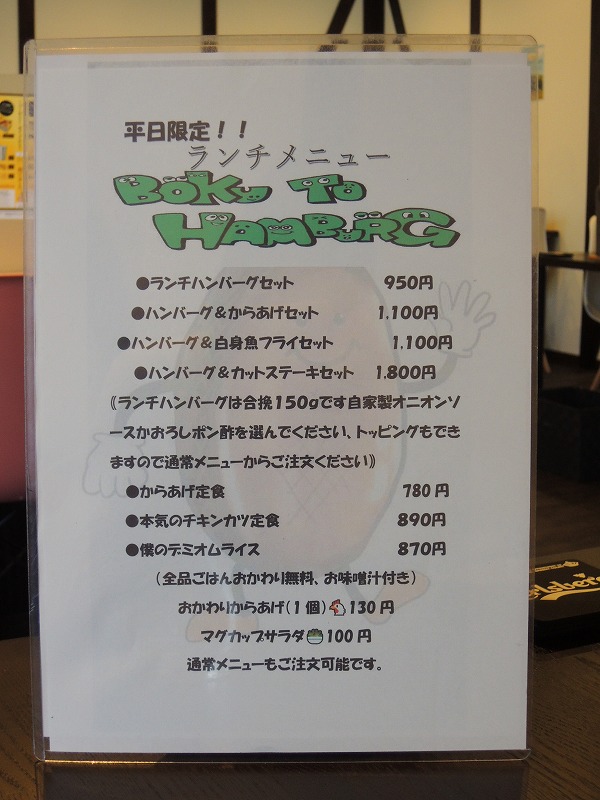 平日限定！！
ランチメニュー
BöKu To
HAMBüRG
●ランチハンバーグセット 950円
●ハンバーグ＆からあげセット 1,100円
●ハンバーグ＆白身魚フライセット 1,100円
●ハンバーグ＆カットステーキセット 1,800円
《ランチハンバーグは合挽150gです自家製オニオンソ
ースかおろしポン酢を選んでください、トッピングもでき
ますので通常メニューからご注文ください》
●からあげ定食 780円
●本気のチキンカツ定食 890円
●僕のデミオムライス 870円
（全品ごはんおかわり無料、お味噌汁付き）
おかわりからあげ（１個）130円
マグカップサラダ100円
通常メニューもご注文可能です。